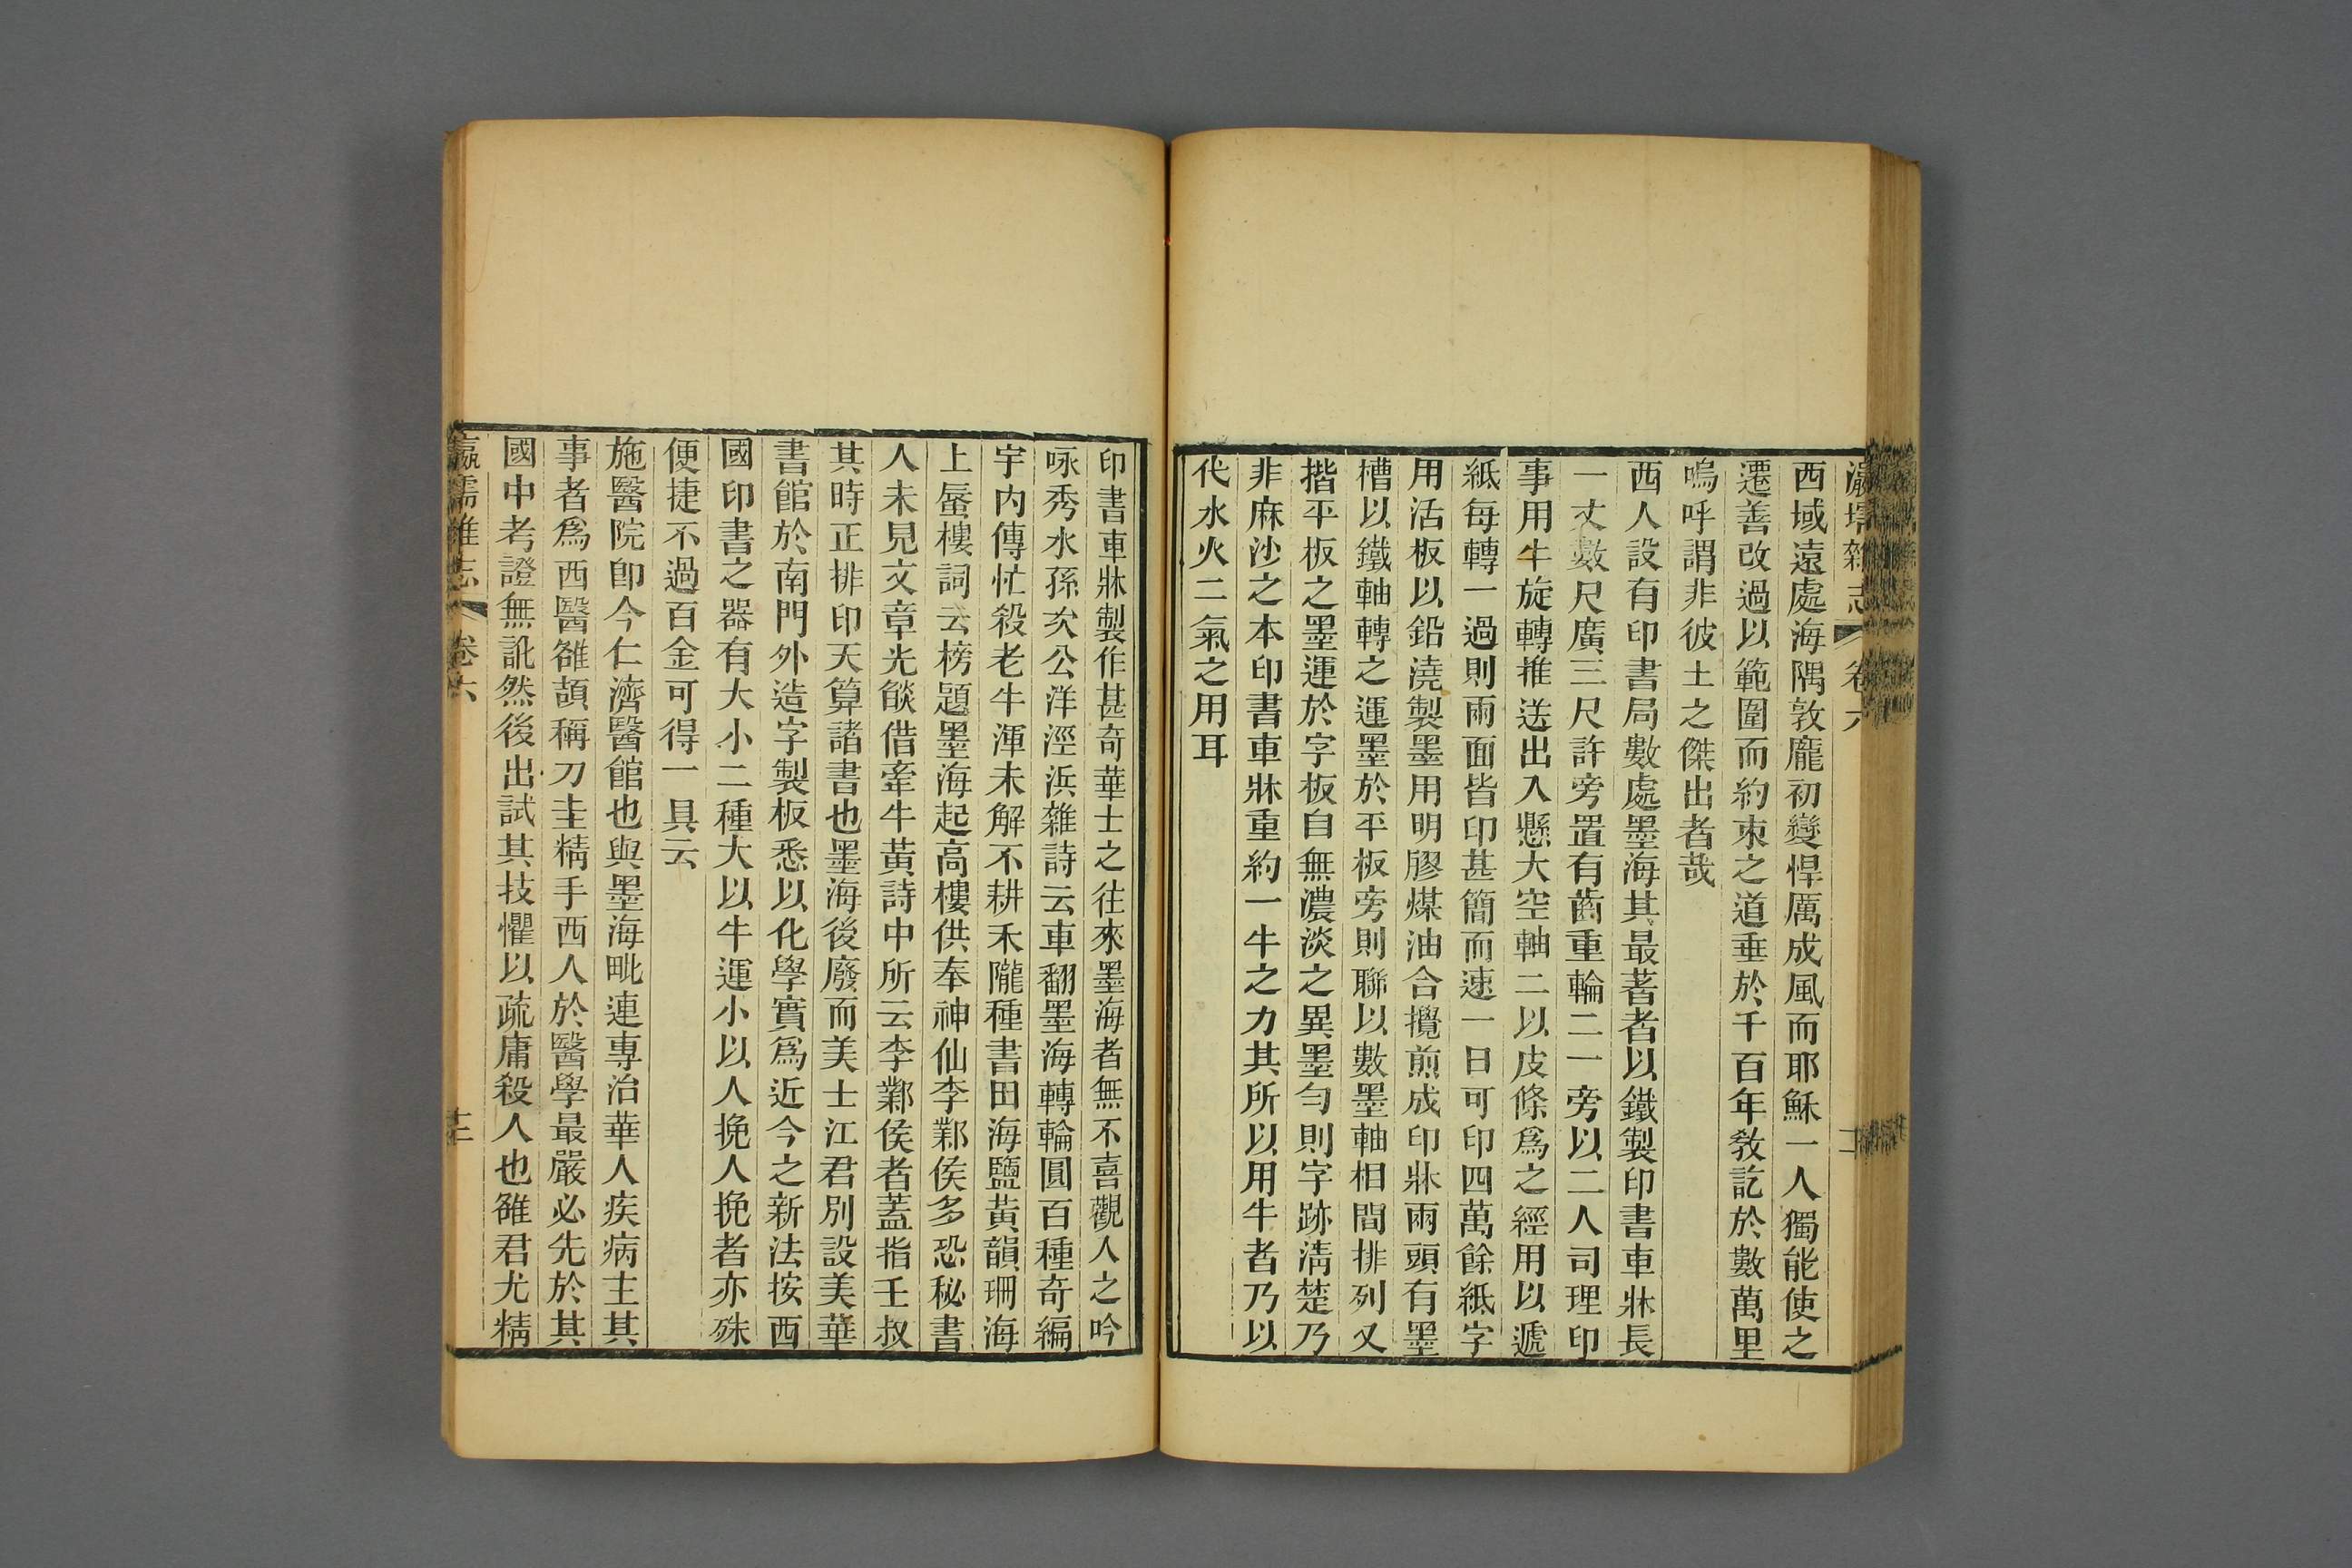 瀛壖雜志 卷六
西域遠處海隅敦龐初變悍厲成風而耶穌一人獨能使之
遷善改過以範圍而約束之道垂於千百年敎訖於數萬里
嗚呼謂非彼土之傑出者哉
西人設有印書局數處墨海其最著者以鐵製印書車牀長
一丈數尺廣三尺許旁置有齒重輪二一旁以二人司理印
事用牛旋轉推送出入懸大空軸二以皮條爲之經用以遞
紙每轉一過則兩面皆印甚簡而速一日可印四萬餘紙字
用活板以鉛澆製墨用明膠煤油合攪煎成印牀兩頭有墨
槽以鐵軸轉之運墨於平板旁則聯以數墨軸相間排列又
揩平板之墨運於字板自無濃淡之異墨勻則字跡淸楚乃
非麻沙之本印書車牀重約一牛之力其所以用牛者乃以
代水火二氣之用耳
印書車牀製作甚奇華士之往來墨海者無不喜觀入之吟
咏秀水孫次公洋涇浜雜詩云車翻墨海轉輪圓百種奇編
宇內傳忙殺老牛渾未解不耕禾隴種書田海鹽黃韻珊海
上蜃樓詞云榜題墨海起高樓供奉神仙李鄴侯多恐秘書
人未見文章光燄借牽牛黃詩中所云李鄴侯者蓋指壬叔
其時正排印天算諸書也墨海後廢而美士江君別設美華
書館於南門外造字製板悉以化學實爲近今之新法按西
國印書之器有大小二種大以牛運小以人挽人挽者亦殊
便捷不過百金可得一具云
施醫院卽今仁濟醫館也與墨海毗連專治華人疾病主其
事者爲西醫雒頡稱刀圭精手西人於醫學最嚴必先於其
國中考證無訛然後出試其技懼以疏庸殺人也雒君尤精
瀛壖雜志 卷六